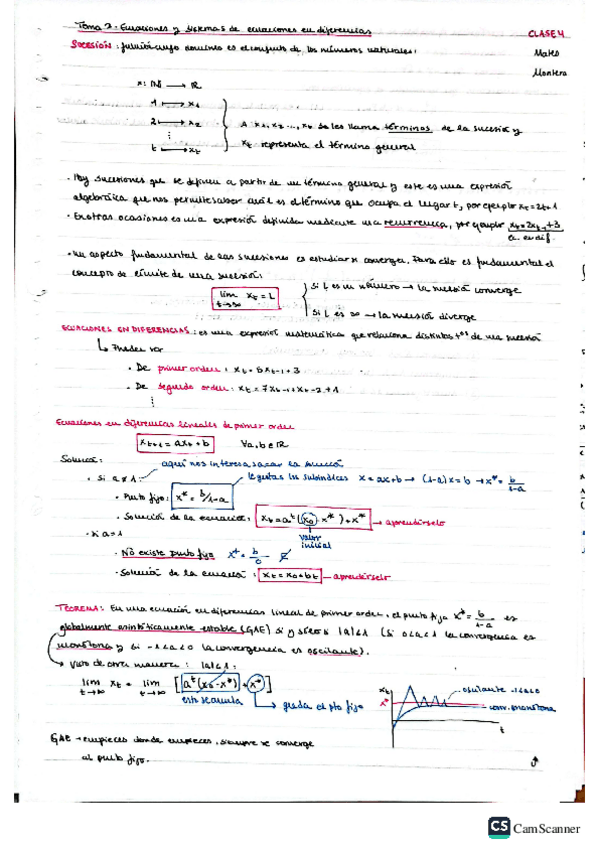 Tema 2: Ecuaciones y sistemas de ecuaciones en diferencias
CLASE 4
Mateo
Montero
SUCESIÓN: función cuyo dominio es el conjunto de los números naturales:
x: ℕ → ℝ
1 ↦ x₁
2 ↦ x₂
⋮
t ↦ xₜ
A x₁, x₂, ..., xₜ se les llama términos de la sucesión y
xₜ representa el término general
· Hay sucesiones que se definen a partir de un término general y este es una expresión
algebráica que nos permite saber cuál es el término que ocupa el lugar t, por ejemplo xₜ = 2t+1
· En otras ocasiones es una expresión definida mediante una recurrencia, por ejemplo xₜ = 2xₜ₋₁ + 3
ec. en dif.
· Un aspecto fundamental de las sucesiones es estudiar si converge. Para ello es fundamental el
concepto de límite de una sucesión:
lim xₜ = L
t→∞
Si L es un número → la sucesión converge
Si L es ∞ → la sucesión diverge
ECUACIONES EN DIFERENCIAS: es una expresión matemática que relaciona distintos tᵒˢ de una sucesión
↳ Pueden ser
· De primer orden: xₜ = 5xₜ₋₁ + 3
· De segundo orden: xₜ = 7xₜ₋₁ + xₜ₋₂ + 1
⋮
Ecuaciones en diferencias lineales de primer orden
xₜ₊₁ = axₜ + b ∀a, b ∈ ℝ
Solución: aquí nos interesa sacar la solución
· Si a ≠ 1: le quitas los subíndices x = ax + b → (1-a)x = b → x* = b/1-a
· Punto fijo: x* = b/1-a
· Solución de la ecuación: xₜ = aᵗ(x₀ - x*) + x* → aprendérselo
valor
inicial
· Si a = 1
· No existe punto fijo x* = b/0 → ∄
· Solución de la ecuación: xₜ = x₀ + bt → aprendérselo
TEOREMA: En una ecuación en diferencias lineal de primer orden, el punto fijo x* = b/1-a es
globalmente asintóticamente estable (GAE) si y sólo si |a| < 1 (si 0 < a < 1 la convergencia es
monótona y si -1 < a < 0 la convergencia es oscilante).
Visto de otra manera: |a| < 1:
lim xₜ = lim [aᵗ(x₀ - x*) + x*]
t→∞ t→∞
esto se anula
queda el pto fijo
xₜ
x*
oscilante -1<a<0
conv. monótona
t
GAE → empieces donde empieces, siempre se converge
al punto fijo.
CS CamScanner